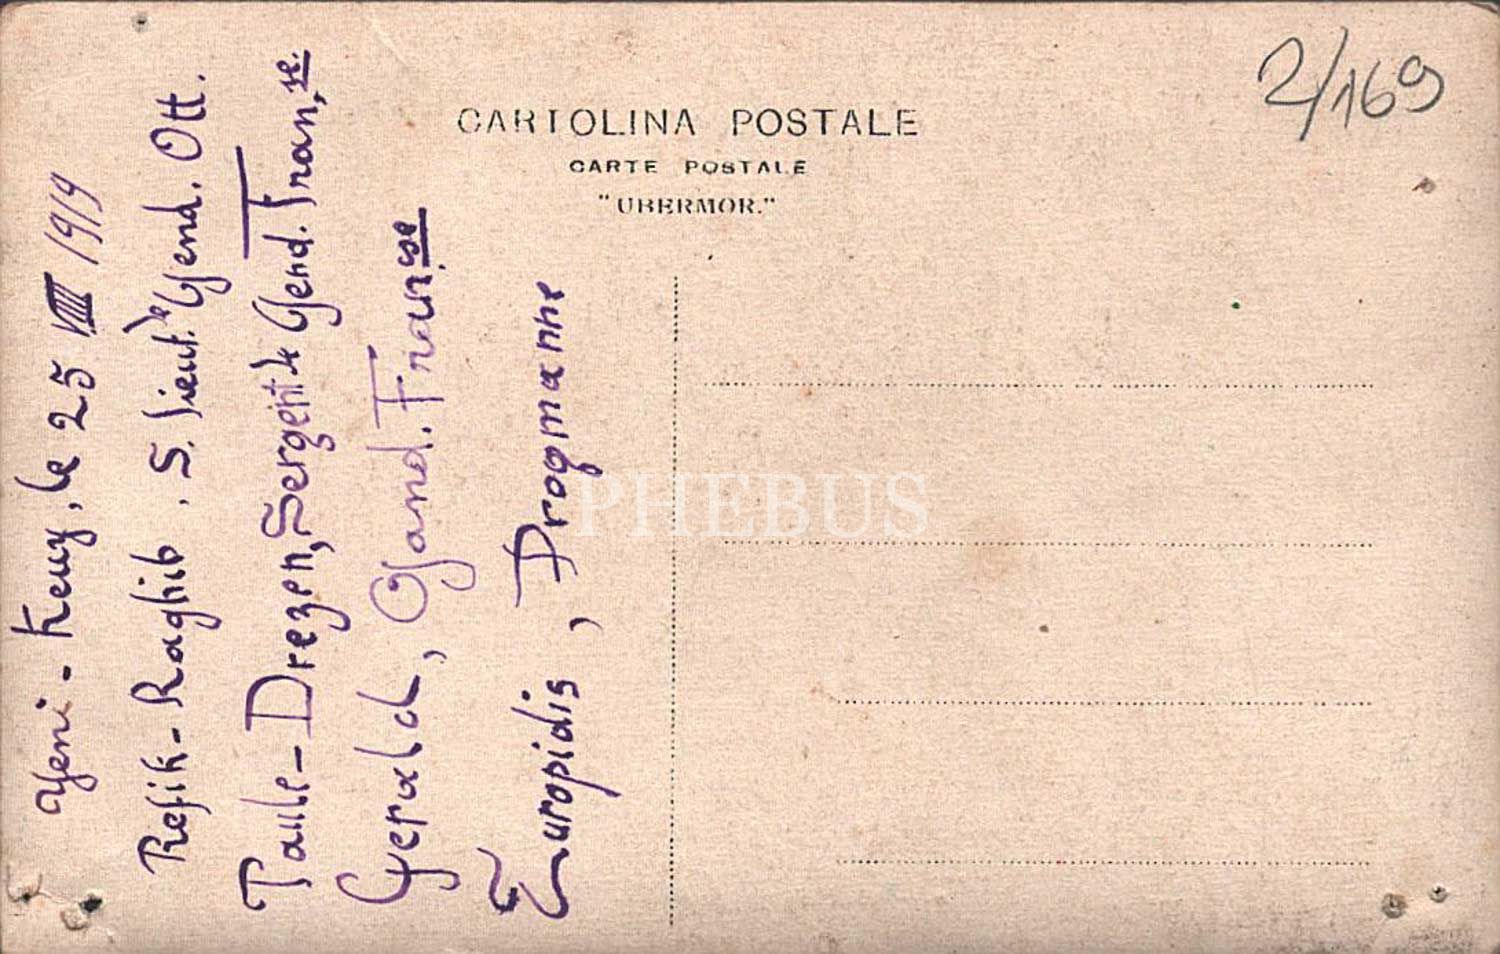 2/169
CARTOLINA POSTALE
CARTE POSTALE
"UBERMOR."
Yeni-Keuy, le 25 VIII 1919
Refik-Raghib, S. Lieut. de Gend. Ott.
Taille-Drezen, Sergent de Gend. Fran,se.
Gerald, Gand. Franse
Europidis, Drogmanne
PHEBUS